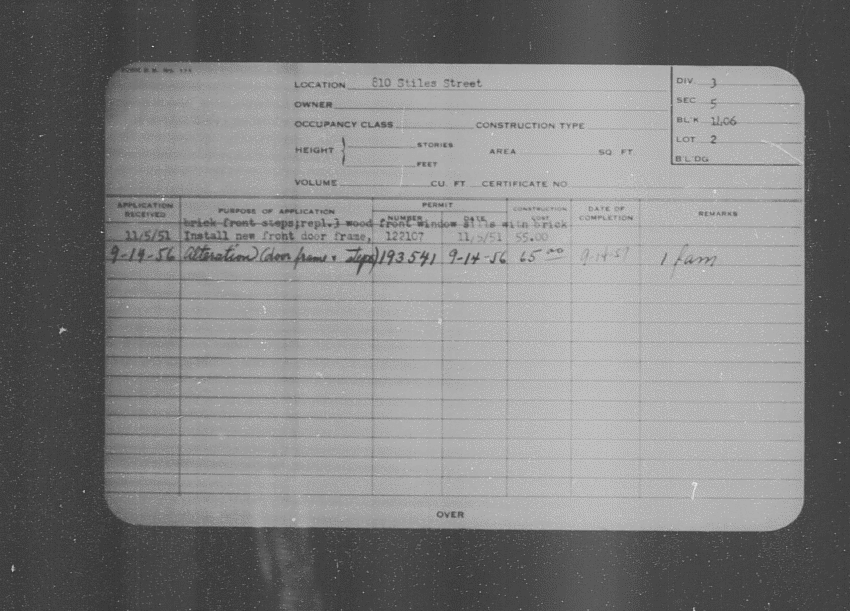 LOCATION 810 Stiles Street
DIV. 3
OWNER
SEC 5
OCCUPANCY CLASS CONSTRUCTION TYPE
BL'K 1106
HEIGHT STORIES FEET AREA SQ FT
LOT 2
BLDG
VOLUME CU. FT CERTIFICATE NO
APPLICATION RECEIVED PURPOSE OF APPLICATION PERMIT NUMBER DATE CONSTRUCTION COST DATE OF COMPLETION REMARKS
brick front steps;repl.3 wood front window sills with brick
11/5/51 Install new front door frame, 122107 11/5/51 55.00
9-19-56 Alteration (door frame + steps) 193541 9-14-56 65 00 9-14-57 1 fam
OVER